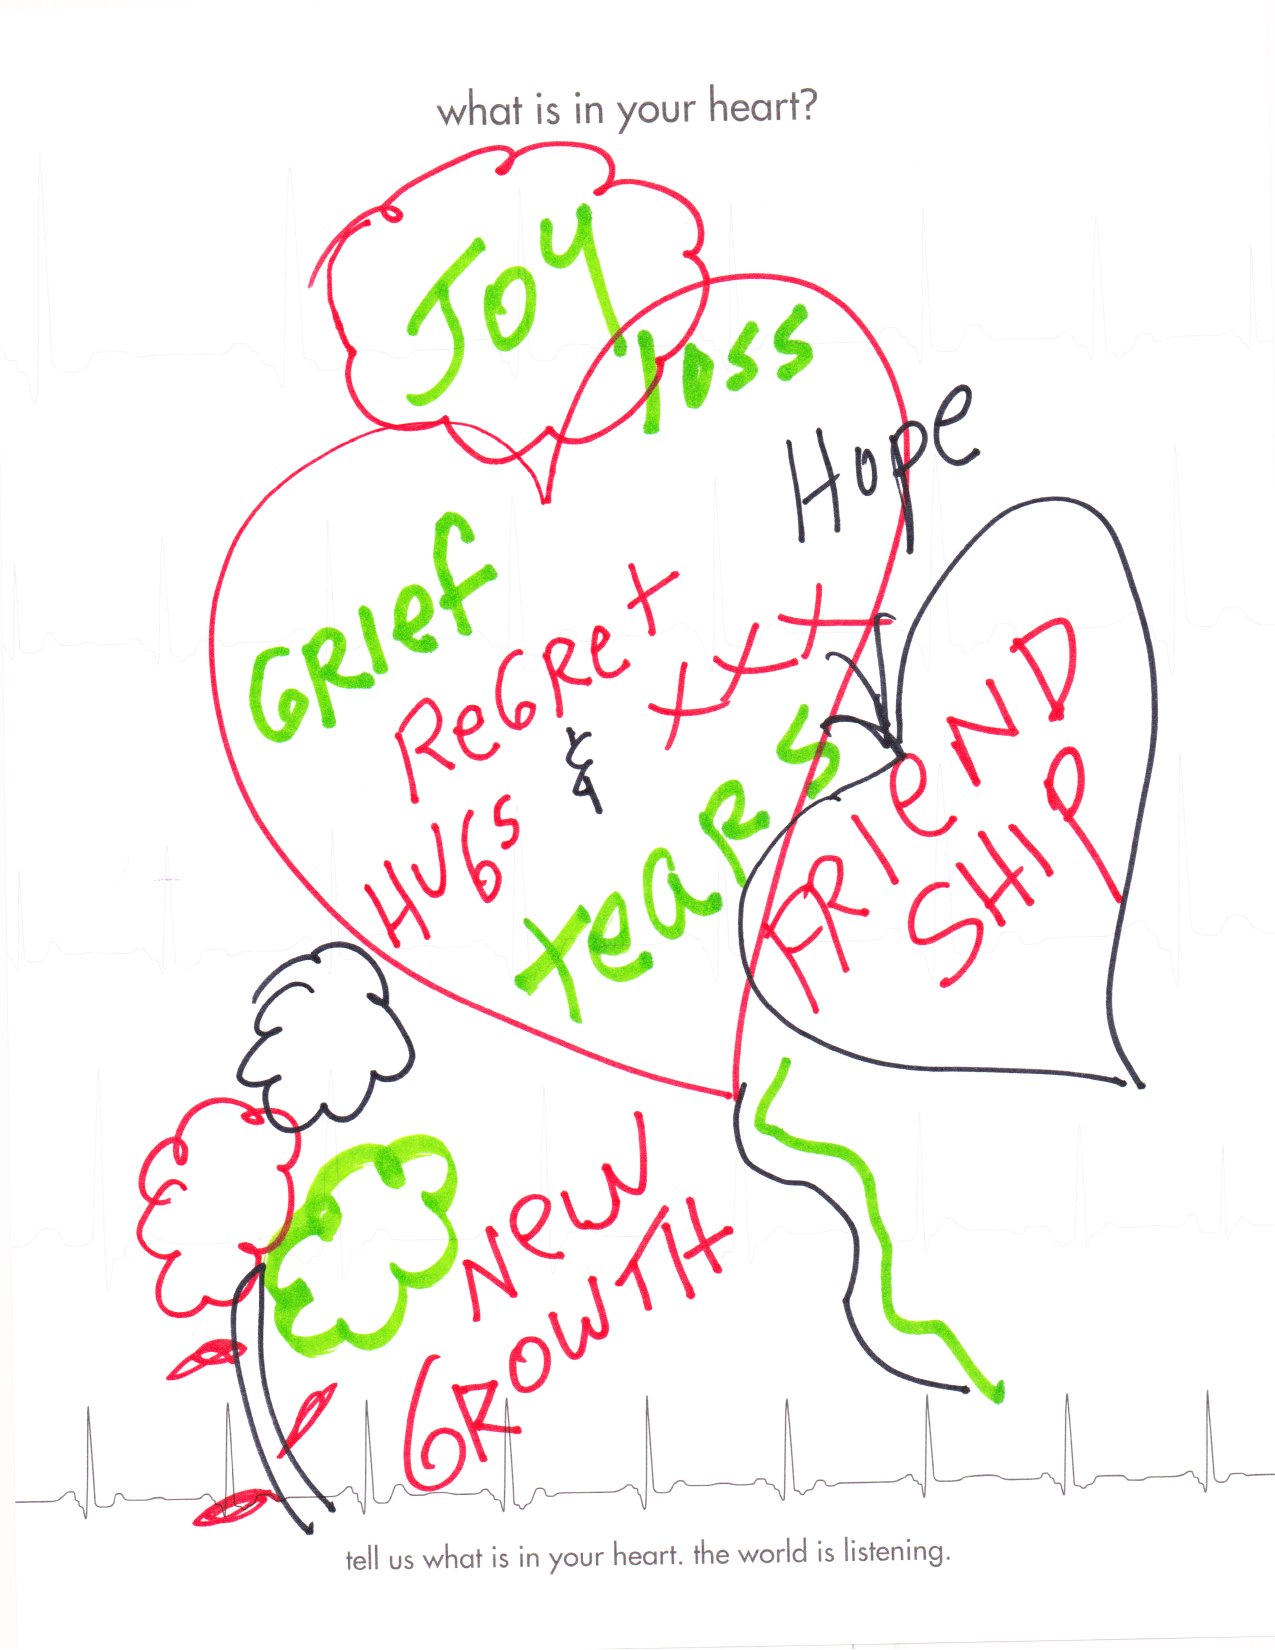 what is in your heart?
Joy
loss
Hope
GRIef
ReGRet
xxx
HUGS &
teARS
FRIeND
SHIP
NeW
GROWTH
tell us what is in your heart. the world is listening.